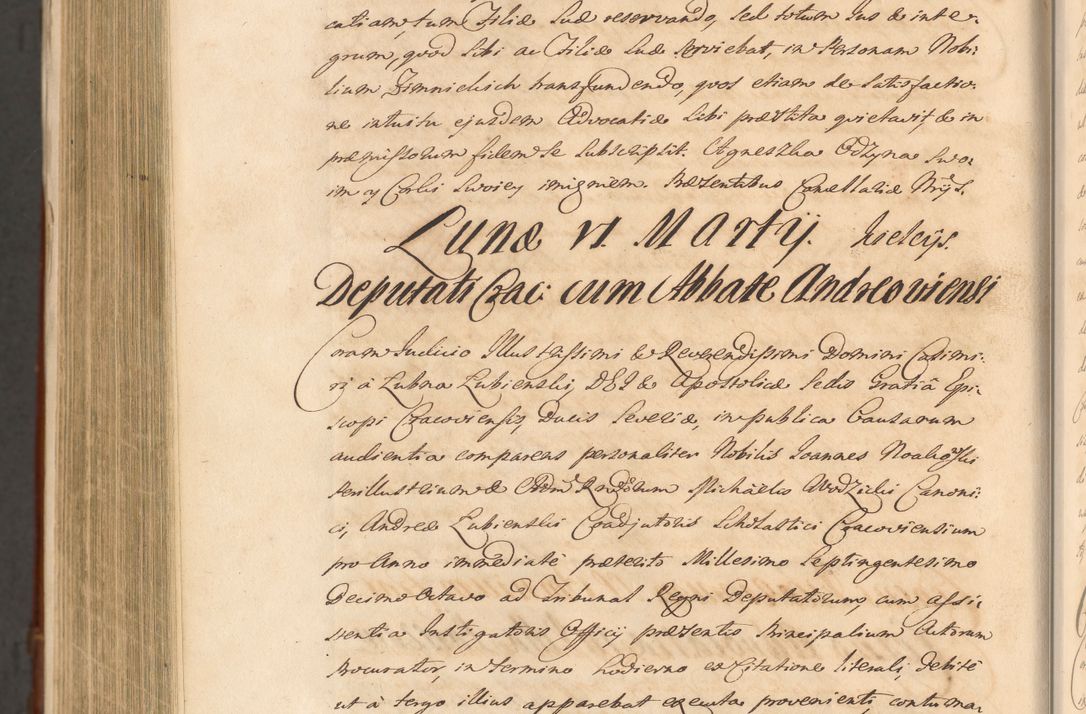 catiam, tum Filiæ Suæ reservando, sed totum Jus & inte-
grum, quod Sibi ac Filiæ Suæ serviebat, in Personam Nobi-
lium Zimnickich transfundendo, quos etiam de Satisfactio-
ne intuitu ejusdem Advocatiæ Sibi præstita quietavit, & in
præmissorum fidem se Subscripsit. Agneszka Odzyna Swo-
im y Corki Swoiey imigniem. Præsentibus Cancellariæ
Lunæ VI Martÿ. Kielcÿs.
Deputati Crac: cum Abbate Andreoviensi
Coram Judicio Illustrissimi & Reverendissimi Domini Casimi-
rj à Lubna Lubienskj, DEI & Apostolicæ Sedis Gratiâ Epi-
scopi Cracoviensis, Ducis Severiæ, in publica Causarum
audientia comparens personaliter Nobilis Joannes
Perillustrium & Adm Rndorum Michaelis Wodzicki Canoni-
ci, Andreæ Lubienski Coadjutoris Scholastici Cracoviensium
pro Anno immediatè præterito Millesimo Septingentesimo
Decimo Octavo ad Tribunal Regni Deputatorum, cum assi-
stentia Instigatoris Officij præsentis Principalium Actorum
Procurator, in termino hodierno ex Citatione literali, debitè
ut à tergo illius apparebat executa proveniente, contuma-